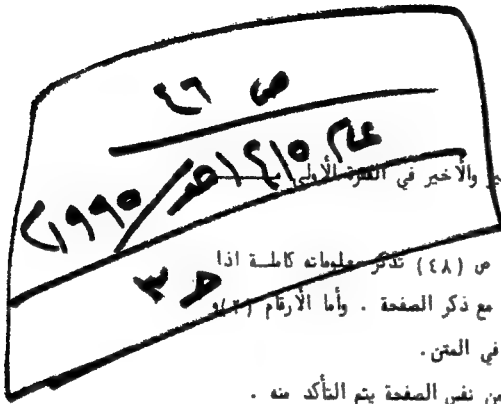 ص ٤٦
عام ١٤١٥هـ / ١٩٩٥م
والأخير في الفقرة الأولى
ص (٤٨) تذكر معلوماته كاملة اذا
مع ذكر الصفحة . وأما الأرقام
في المتن .
من نفس الصفحة يتم التأكد منه .